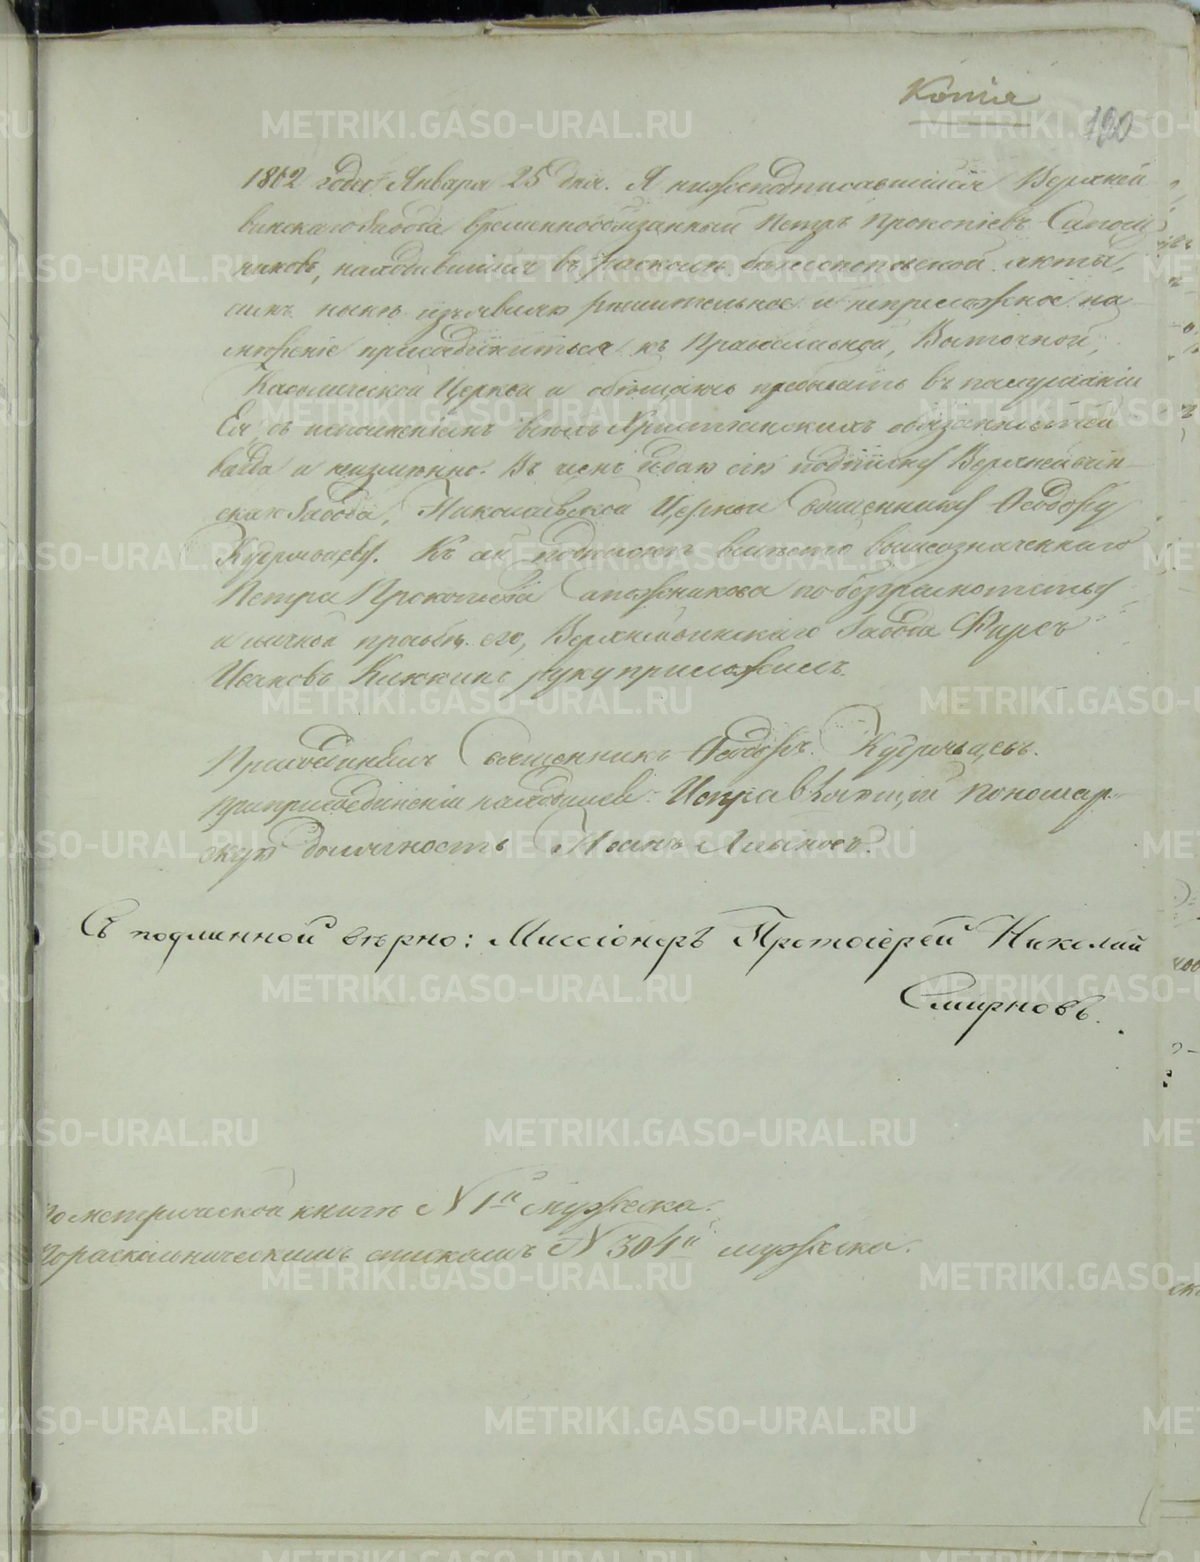 Копія
120
1862 года Января 25 дня. Я нижеподписавшійся Верхней-
винскаго завода временнообязанный Петръ Прокопіевъ Сапож-
никовъ, находившійся въ расколѣ безпоповской секты,
симъ нынѣ изъявляю рѣшительное и непреложное на-
мѣреніе присоединиться къ Православной, Восточной,
Каѳолической Церкви и обѣщаюсь пребывать въ послушаніи
Ея съ исполненіемъ всѣхъ Христіанскихъ обязанностей
всегда и неизмѣнно. Въ чемъ и даю сію подписку Верхнейвин-
скаго Завода, Николаевской Церкви Священнику Ѳеодору
Кудрявцеву. Къ сей подпискѣ вмѣсто вышеозначеннаго
Петра Прокопіева Сапожникова по безграмотству
и личной просьбѣ его, Верхнейвинскаго Завода
Ивановъ руку приложилъ.
Присоединялъ Священникъ Ѳеодоръ Кудрявцевъ.
при присоединеніи находился: Исправляющій пономар-
скую должность Іоаннъ
Съ подлинной вѣрно: Миссіонеръ Протоіерей Николай
Смирновъ.
По метрической книгѣ N 1й мужеска.
По раскольническимъ спискамъ N 304й мужеска.
METRIKI.GASO-URAL.RU